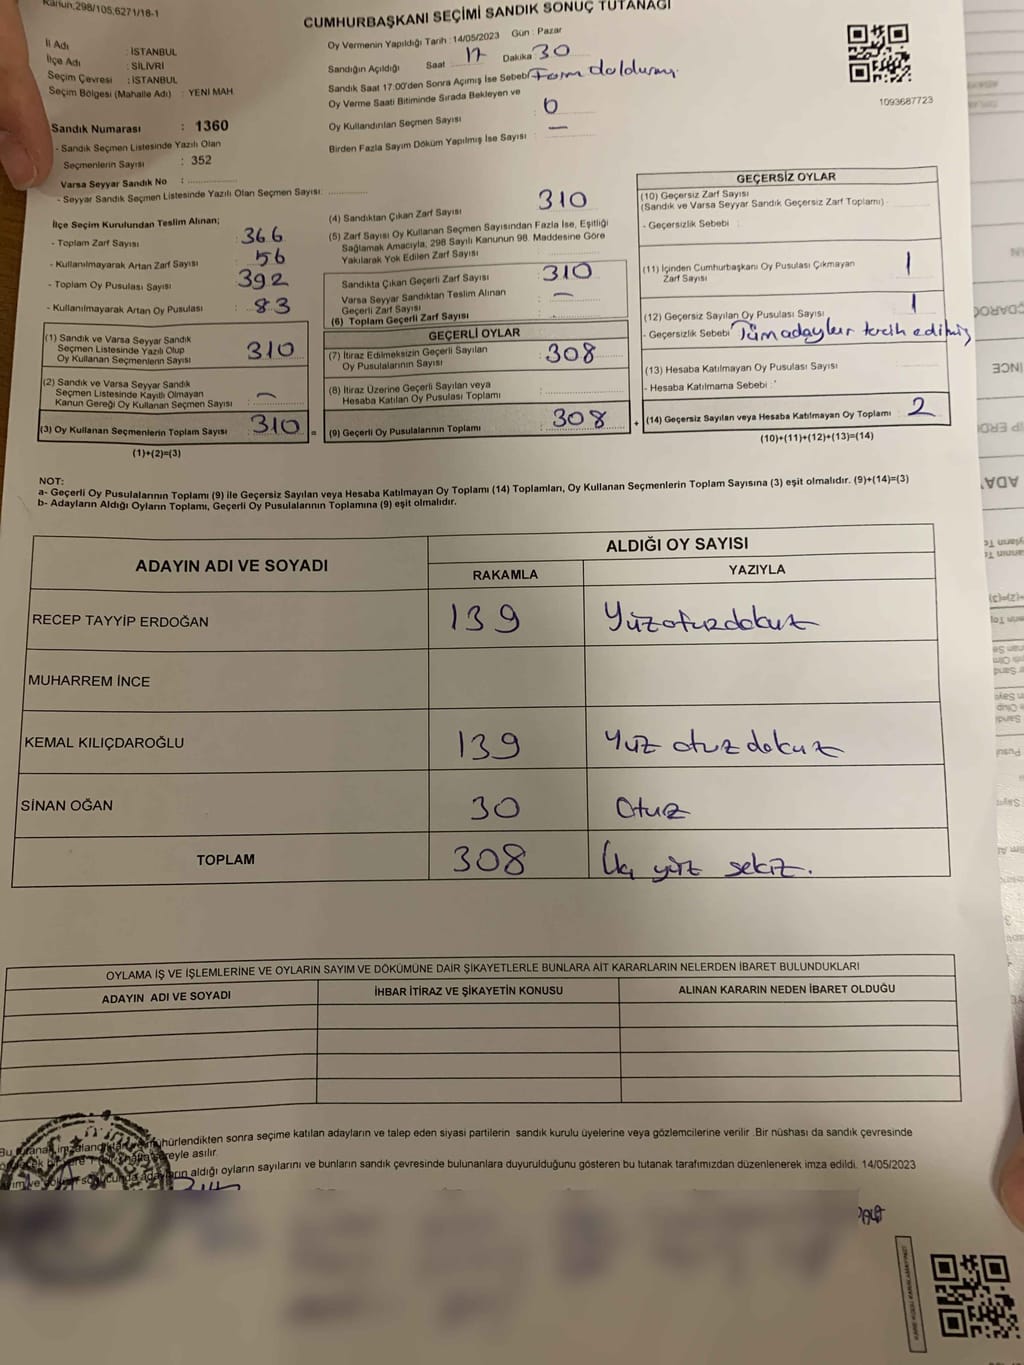 Kanun,298/105,6271/18-1
CUMHURBAŞKANI SEÇİMİ SANDIK SONUÇ TUTANAĞI
İl Adı : İSTANBUL
İlçe Adı : SİLİVRİ
Seçim Çevresi : İSTANBUL
Seçim Bölgesi (Mahalle Adı) : YENİ MAH.
Sandık Numarası : 1360
- Sandık Seçmen Listesinde Yazılı Olan
Seçmenlerin Sayısı : 352
Varsa Seyyar Sandık No :
- Seyyar Sandık Seçmen Listesinde Yazılı Olan Seçmen Sayısı:
Oy Vermenin Yapıldığı Tarih : 14/05/2023 Gün : Pazar
Sandığın Açıldığı Saat 17 Dakika 30
Sandık Saat 17:00'den Sonra Açımış İse Sebebi Form doldurmy.
Oy Verme Saati Bitiminde Sırada Bekleyen ve
Oy Kullandırılan Seçmen Sayısı 0
Birden Fazla Sayım Döküm Yapılmış İse Sayısı : —
1093687723
İlçe Seçim Kurulundan Teslim Alınan;
- Toplam Zarf Sayısı : 366
- Kullanılmayarak Artan Zarf Sayısı : 56
- Toplam Oy Pusulası Sayısı : 392
- Kullanılmayarak Artan Oy Pusulası : 83
(1) Sandık ve Varsa Seyyar Sandık
Seçmen Listesinde Yazılı Olup
Oy Kullanan Seçmenlerin Sayısı : 310
(2) Sandık ve Varsa Seyyar Sandık
Seçmen Listesinde Kayıtlı Olmayan
Kanun Gereği Oy Kullanan Seçmen Sayısı : —
(3) Oy Kullanan Seçmenlerin Toplam Sayısı : 310 =
(1)+(2)=(3)
(4) Sandıktan Çıkan Zarf Sayısı : 310
(5) Zarf Sayısı Oy Kullanan Seçmen Sayısından Fazla İse, Eşitliği
Sağlamak Amacıyla, 298 Sayılı Kanunun 98. Maddesine Göre
Yakılarak Yok Edilen Zarf Sayısı :
Sandıkta Çıkan Geçerli Zarf Sayısı : 310
Varsa Seyyar Sandıktan Teslim Alınan
Geçerli Zarf Sayısı : —
(6) Toplam Geçerli Zarf Sayısı :
GEÇERLİ OYLAR
(7) İtiraz Edilmeksizin Geçerli Sayılan
Oy Pusulalarının Sayısı : 308
(8) İtiraz Üzerine Geçerli Sayılan veya
Hesaba Katılan Oy Pusulası Toplamı :
(9) Geçerli Oy Pusulalarının Toplamı : 308 +
GEÇERSİZ OYLAR
(10) Geçersiz Zarf Sayısı
(Sandık ve Varsa Seyyar Sandık Geçersiz Zarf Toplamı)
- Geçersizlik Sebebi :
(11) İçinden Cumhurbaşkanı Oy Pusulası Çıkmayan
Zarf Sayısı 1
(12) Geçersiz Sayılan Oy Pusulası Sayısı 1
- Geçersizlik Sebebi : Tüm adaylar tercih edilmiş
(13) Hesaba Katılmayan Oy Pusulası Sayısı
- Hesaba Katılmama Sebebi :
(14) Geçersiz Sayılan veya Hesaba Katılmayan Oy Toplamı : 2
(10)+(11)+(12)+(13)=(14)
NOT:
a- Geçerli Oy Pusulalarının Toplamı (9) ile Geçersiz Sayılan veya Hesaba Katılmayan Oy Toplamı (14) Toplamları, Oy Kullanan Seçmenlerin Toplam Sayısına (3) eşit olmalıdır. (9)+(14)=(3)
b- Adayların Aldığı Oyların Toplamı, Geçerli Oy Pusulalarının Toplamına (9) eşit olmalıdır.
ADAYIN ADI VE SOYADI
ALDIĞI OY SAYISI
RAKAMLA YAZIYLA
RECEP TAYYİP ERDOĞAN 139 Yüzotuzdokuz
MUHARREM İNCE
KEMAL KILIÇDAROĞLU 139 Yüz otuz dokuz
SİNAN OĞAN 30 Otuz
TOPLAM 308 Üç yüz sekiz.
OYLAMA İŞ VE İŞLEMLERİNE VE OYLARIN SAYIM VE DÖKÜMÜNE DAİR ŞİKAYETLERLE BUNLARA AİT KARARLARIN NELERDEN İBARET BULUNDUKLARI
ADAYIN ADI VE SOYADI İHBAR İTİRAZ VE ŞİKAYETİN KONUSU ALINAN KARARIN NEDEN İBARET OLDUĞU
Bu sonra seçime katılan adayların ve talep eden siyasi partilerin sandık kurulu üyelerine veya gözlemcilerine verilir .Bir nüshası da sandık çevresinde
süreyle asılır.
aldığı oyların sayılarını ve bunların sandık çevresinde bulunanlara duyurulduğunu gösteren bu tutanak tarafımızdan düzenlenerek imza edildi. 14/05/2023